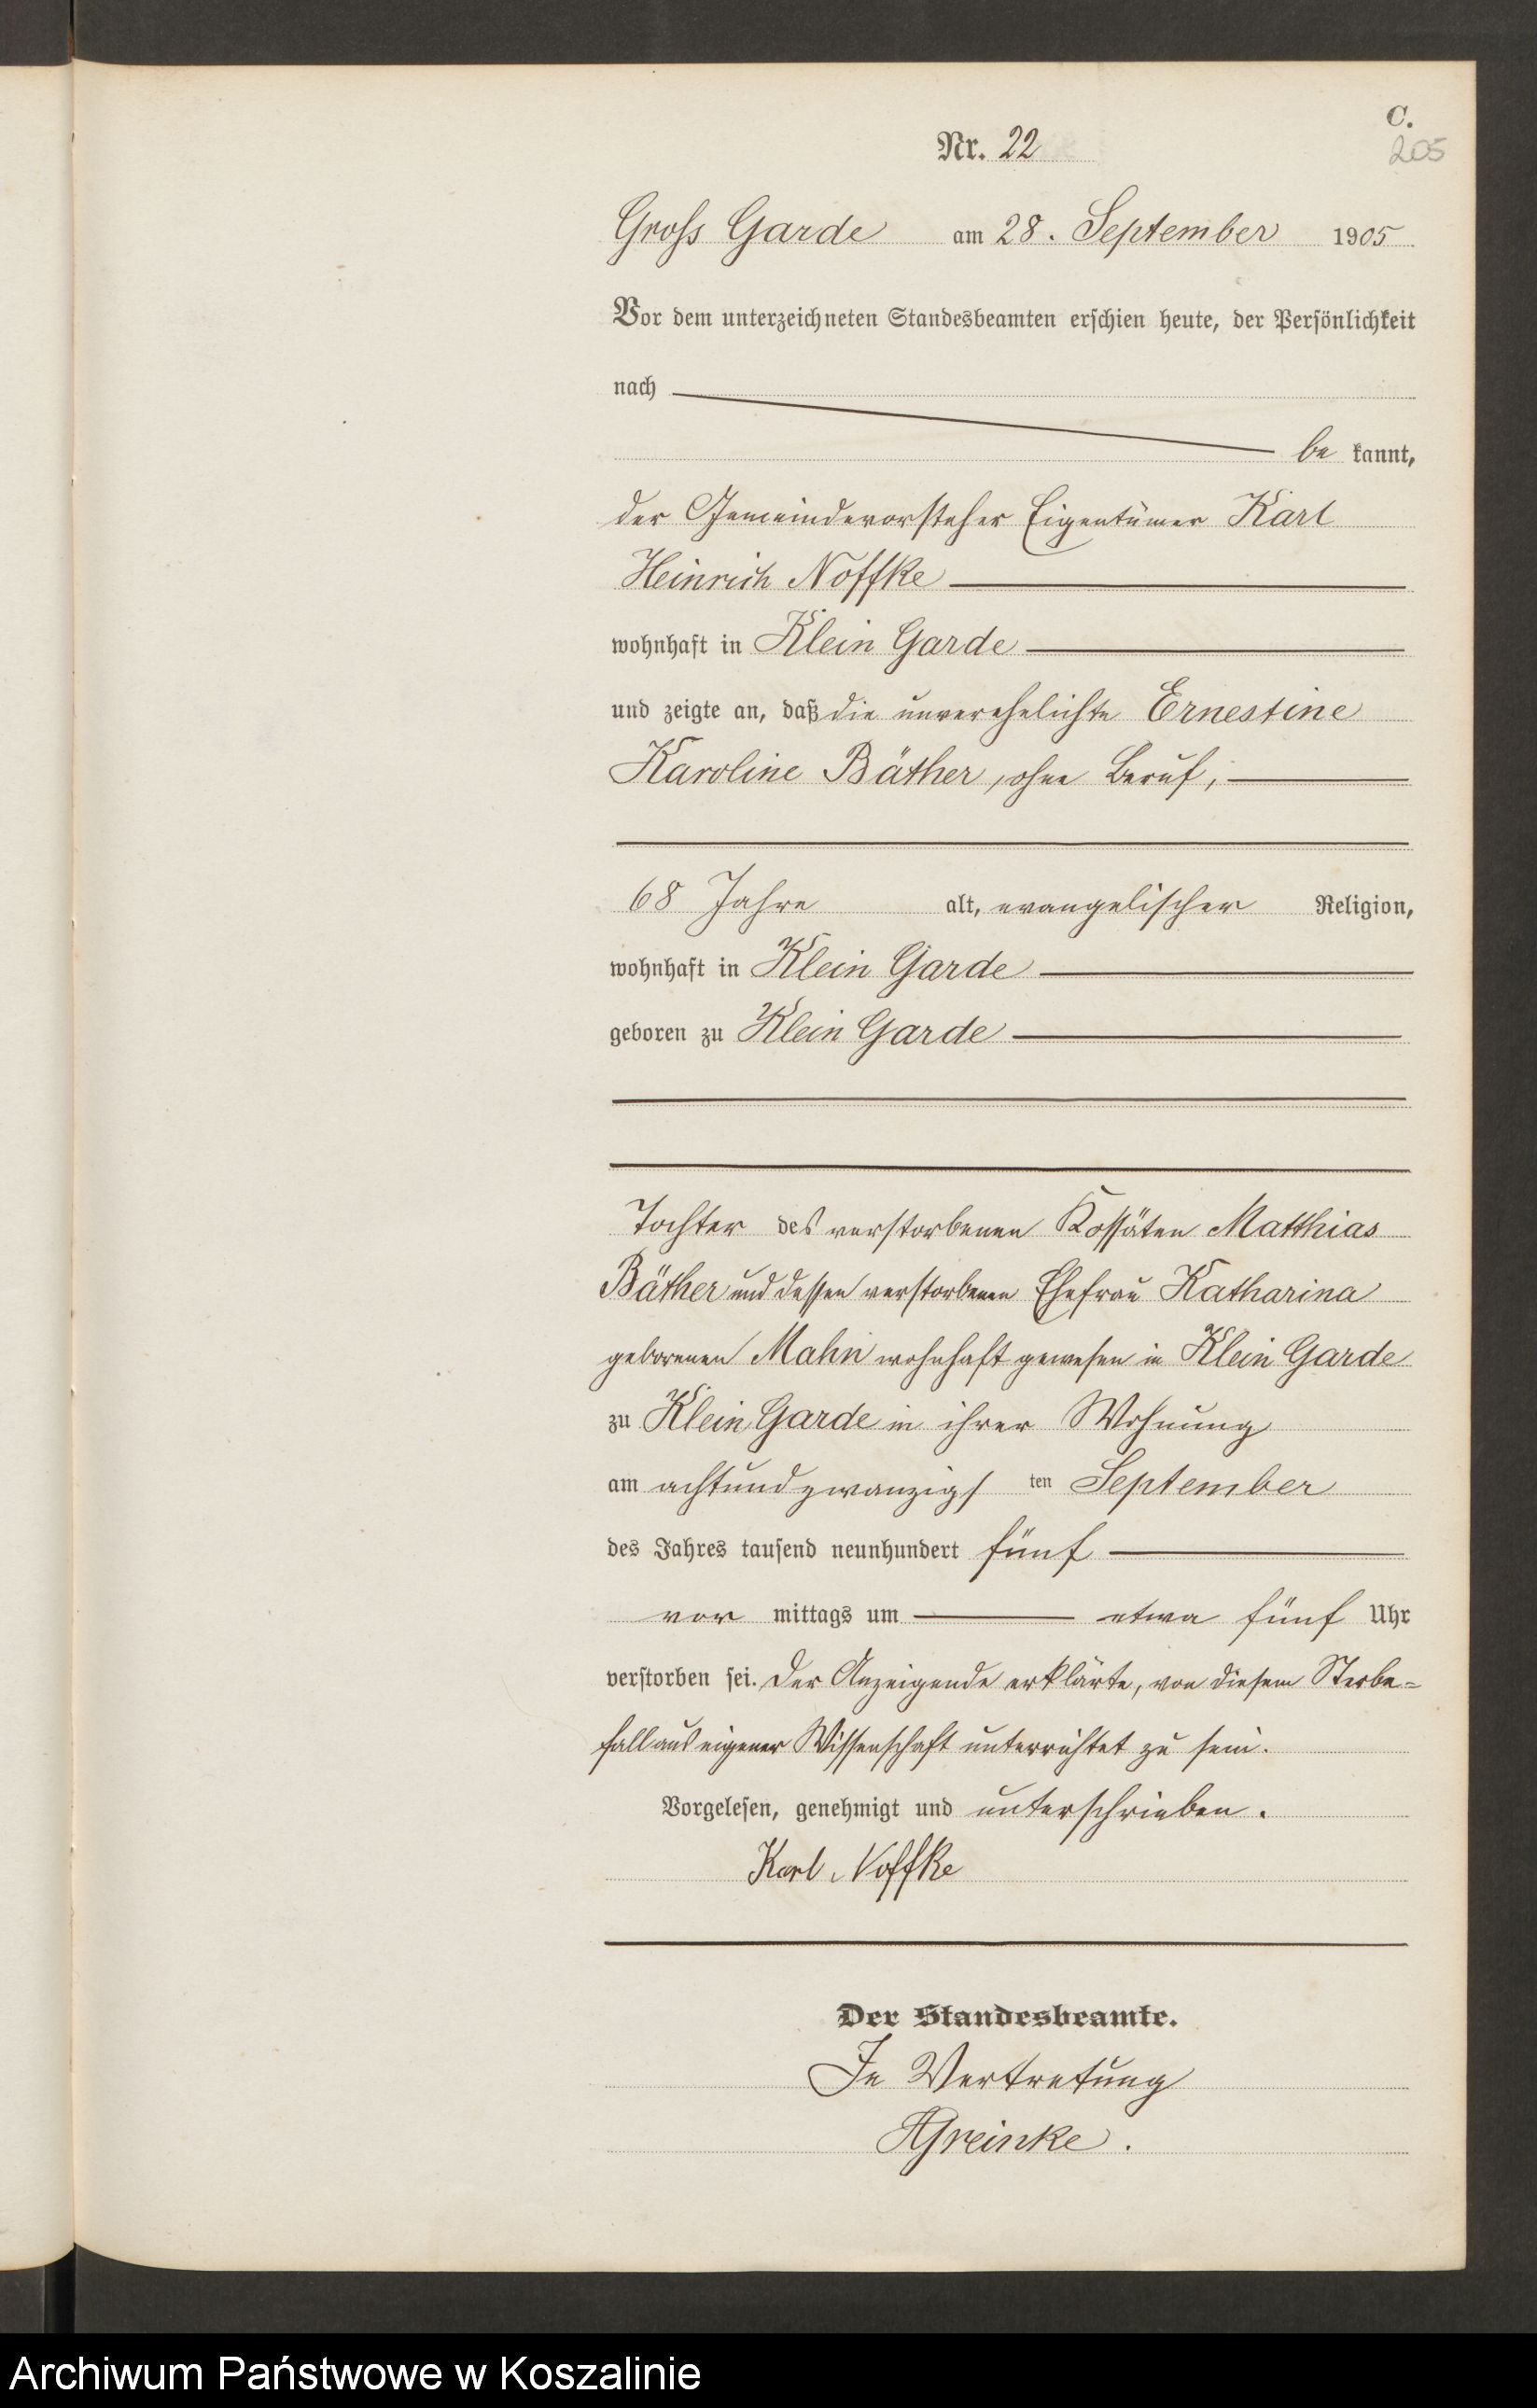 C.
205
Nr. 22
Gross Garde am 28. September 1905
Vor dem unterzeichneten Standesbeamten erschien heute, der Persönlichkeit
nach
be kannt,
der Gemeindevorsteher Eigentümer Karl
Heinrich Noffke
wohnhaft in Klein Garde
und zeigte an, daß die unverehelichte Ernestine
Karoline Bäther, ohne Beruf,
68 Jahre alt, evangelischer Religion,
wohnhaft in Klein Garde
geboren zu Klein Garde
Tochter des verstorbenen Kossäten Matthias
Bäther und dessen verstorbenen Ehefrau Katharina
geborenen Mahn wohnhaft gewesen in Klein Garde
zu Klein Garde in ihrer Wohnung
am achtundzwanzigs ten September
des Jahres tausend neunhundert fünf
vor mittags um etwa fünf Uhr
verstorben sei. Der Anzeigende erklärte, von diesem Sterbe=
fall aus eigener Wissenschaft unterrichtet zu sein.
Vorgelesen, genehmigt und unterschrieben.
Karl Noffke
Der Standesbeamte.
In Vertretung
HGreinke.
Archiwum Państwowe w Koszalinie